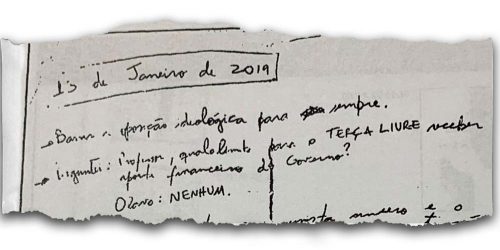 13 de Janeiro de 2019
→ Banir a oposição ideológica para sempre.
→ Perguntei: Professor, qual o limite para o TERÇA LIVRE receber
aporte financeiro do Governo?
Olavo: NENHUM.